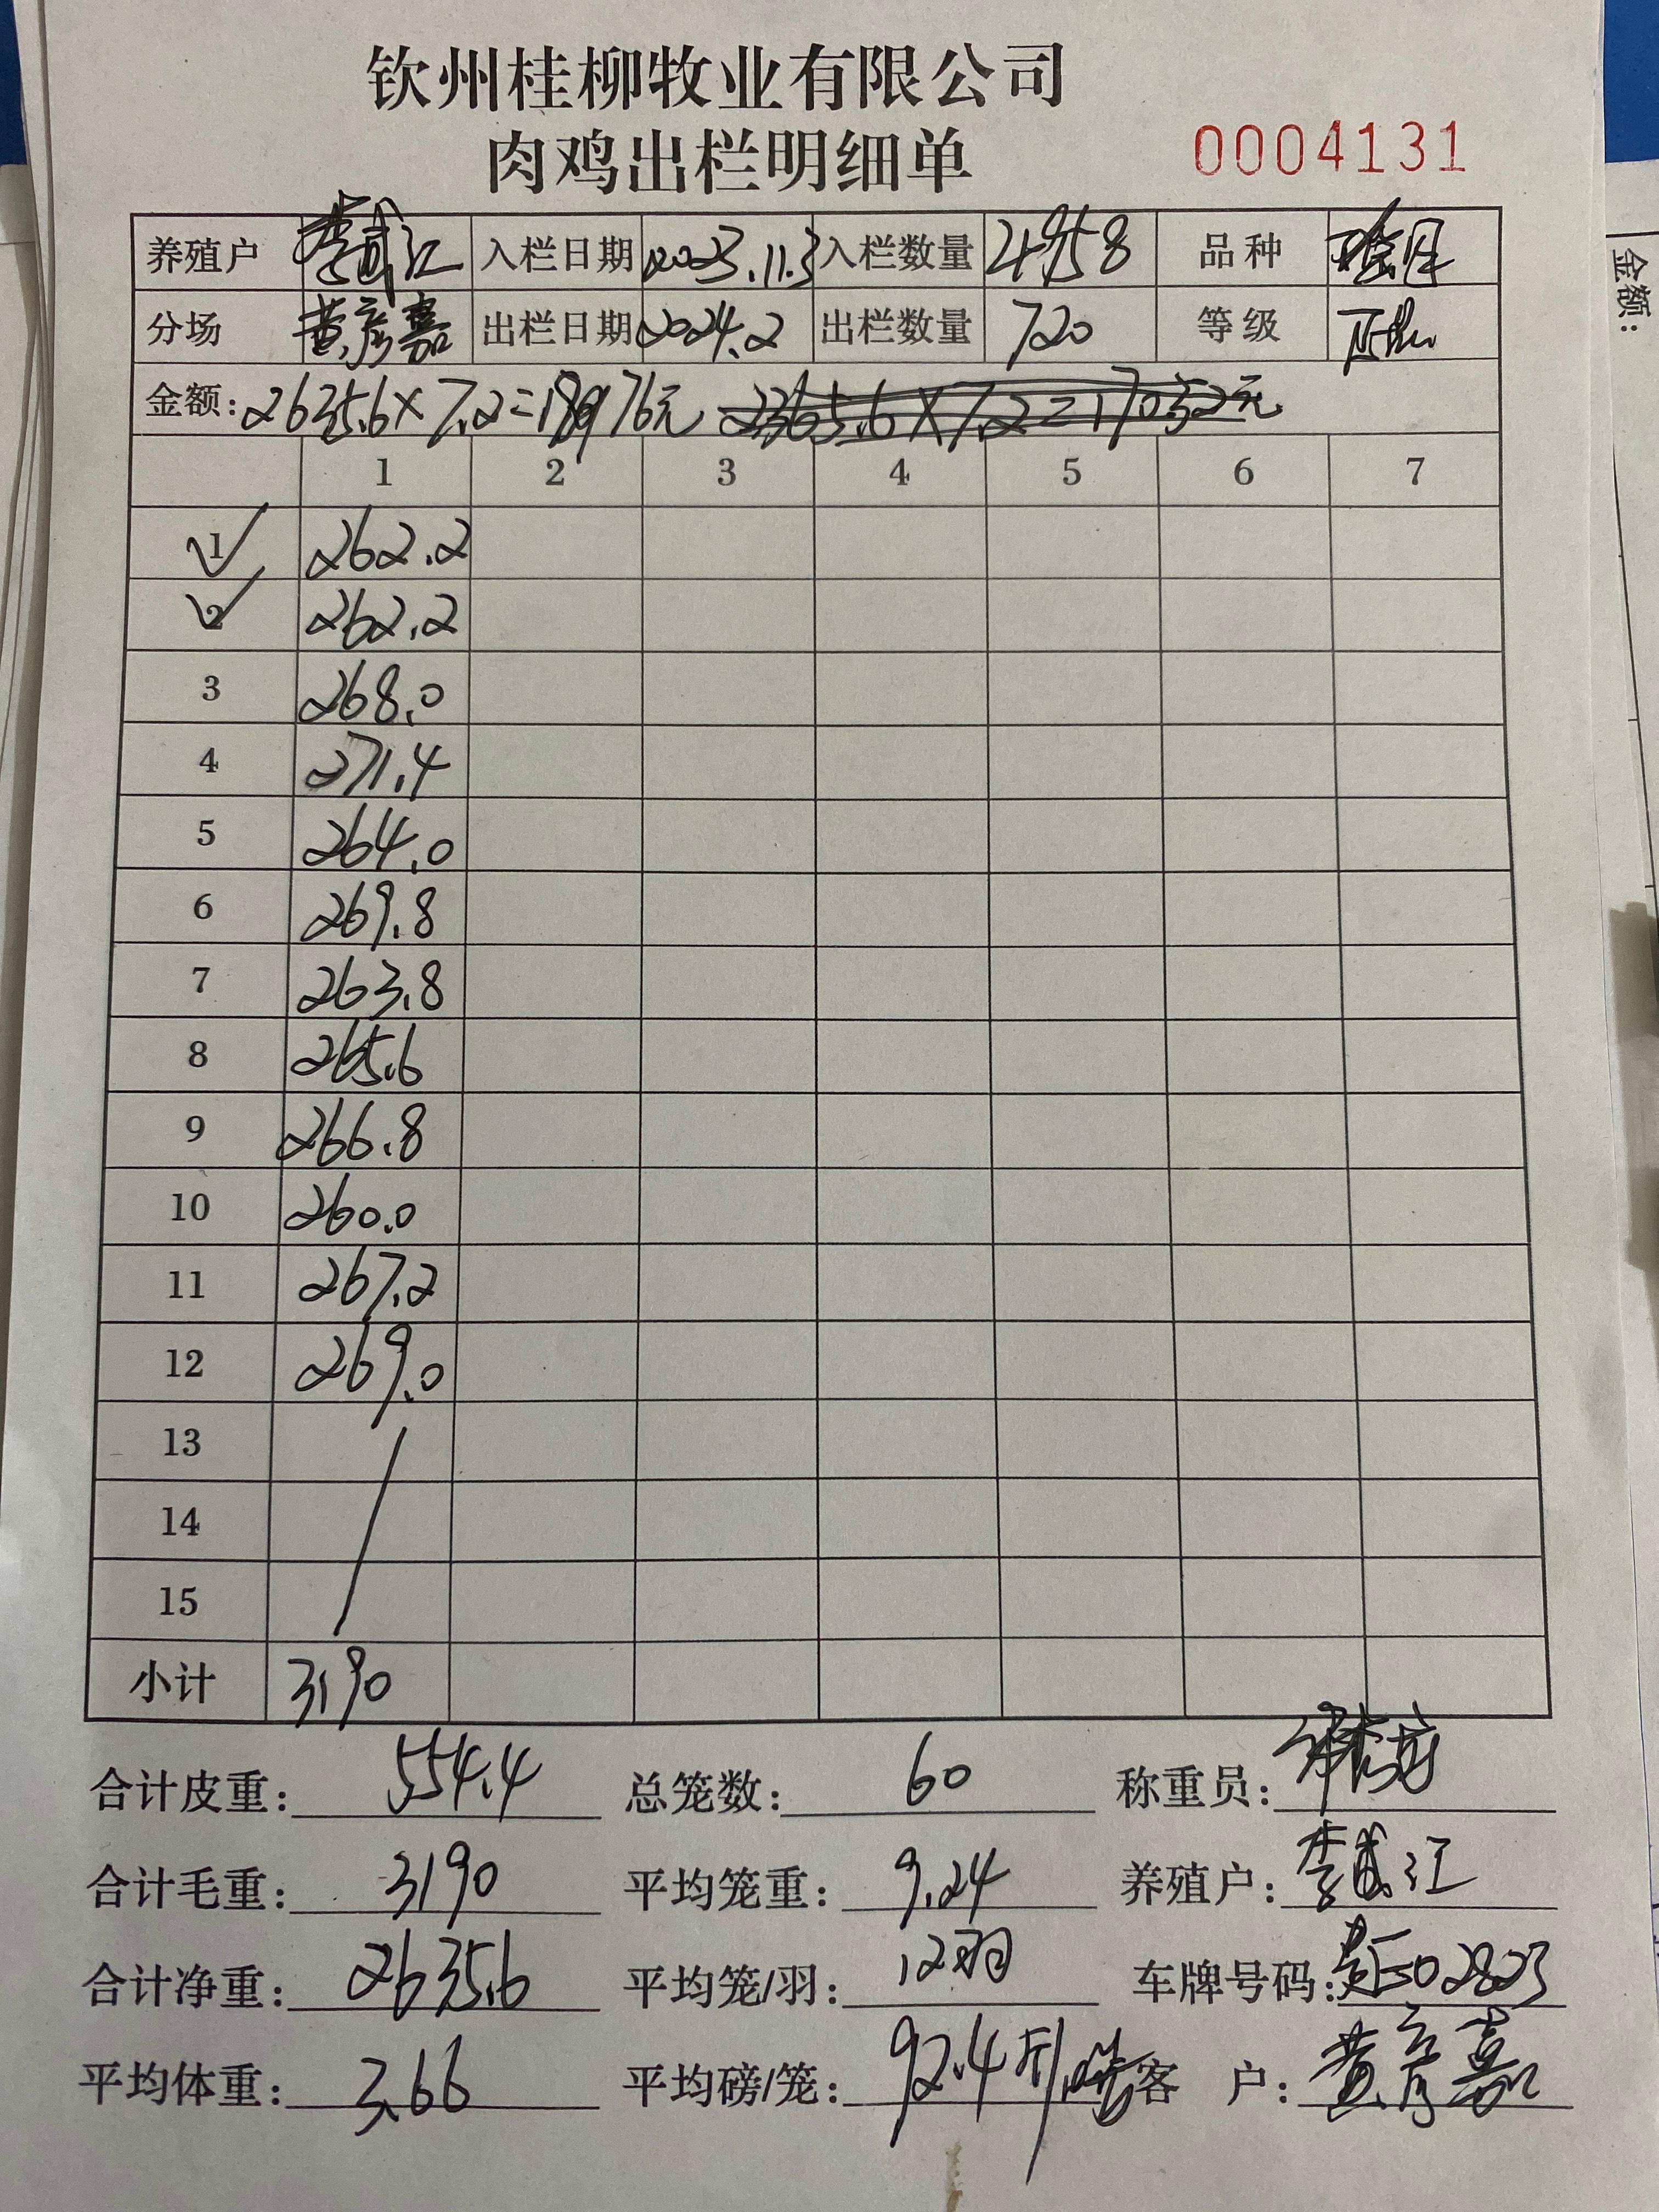 钦州桂柳牧业有限公司
肉鸡出栏明细单 0004131
养殖户 李武江 入栏日期 2023.11.3 入栏数量 4958 品种
分场 黄彦嘉 出栏日期 2024.2 出栏数量 720 等级
金额: 2635.6×7.2=18976元 2365.6×7.2=17032元
1 2 3 4 5 6 7
1 262.2
2 262.2
3 268.0
4 271.4
5 264.0
6 269.8
7 263.8
8 265.6
9 266.8
10 260.0
11 267.2
12 269.0
13
14
15
小计 3190
合计皮重: 554.4 总笼数: 60 称重员:
合计毛重: 3190 平均笼重: 9.24 养殖户: 李武江
合计净重: 2635.6 平均笼/羽: 12羽 车牌号码:
平均体重: 3.66 平均磅/笼: 92.4斤 客户: 黄彦嘉
金额: